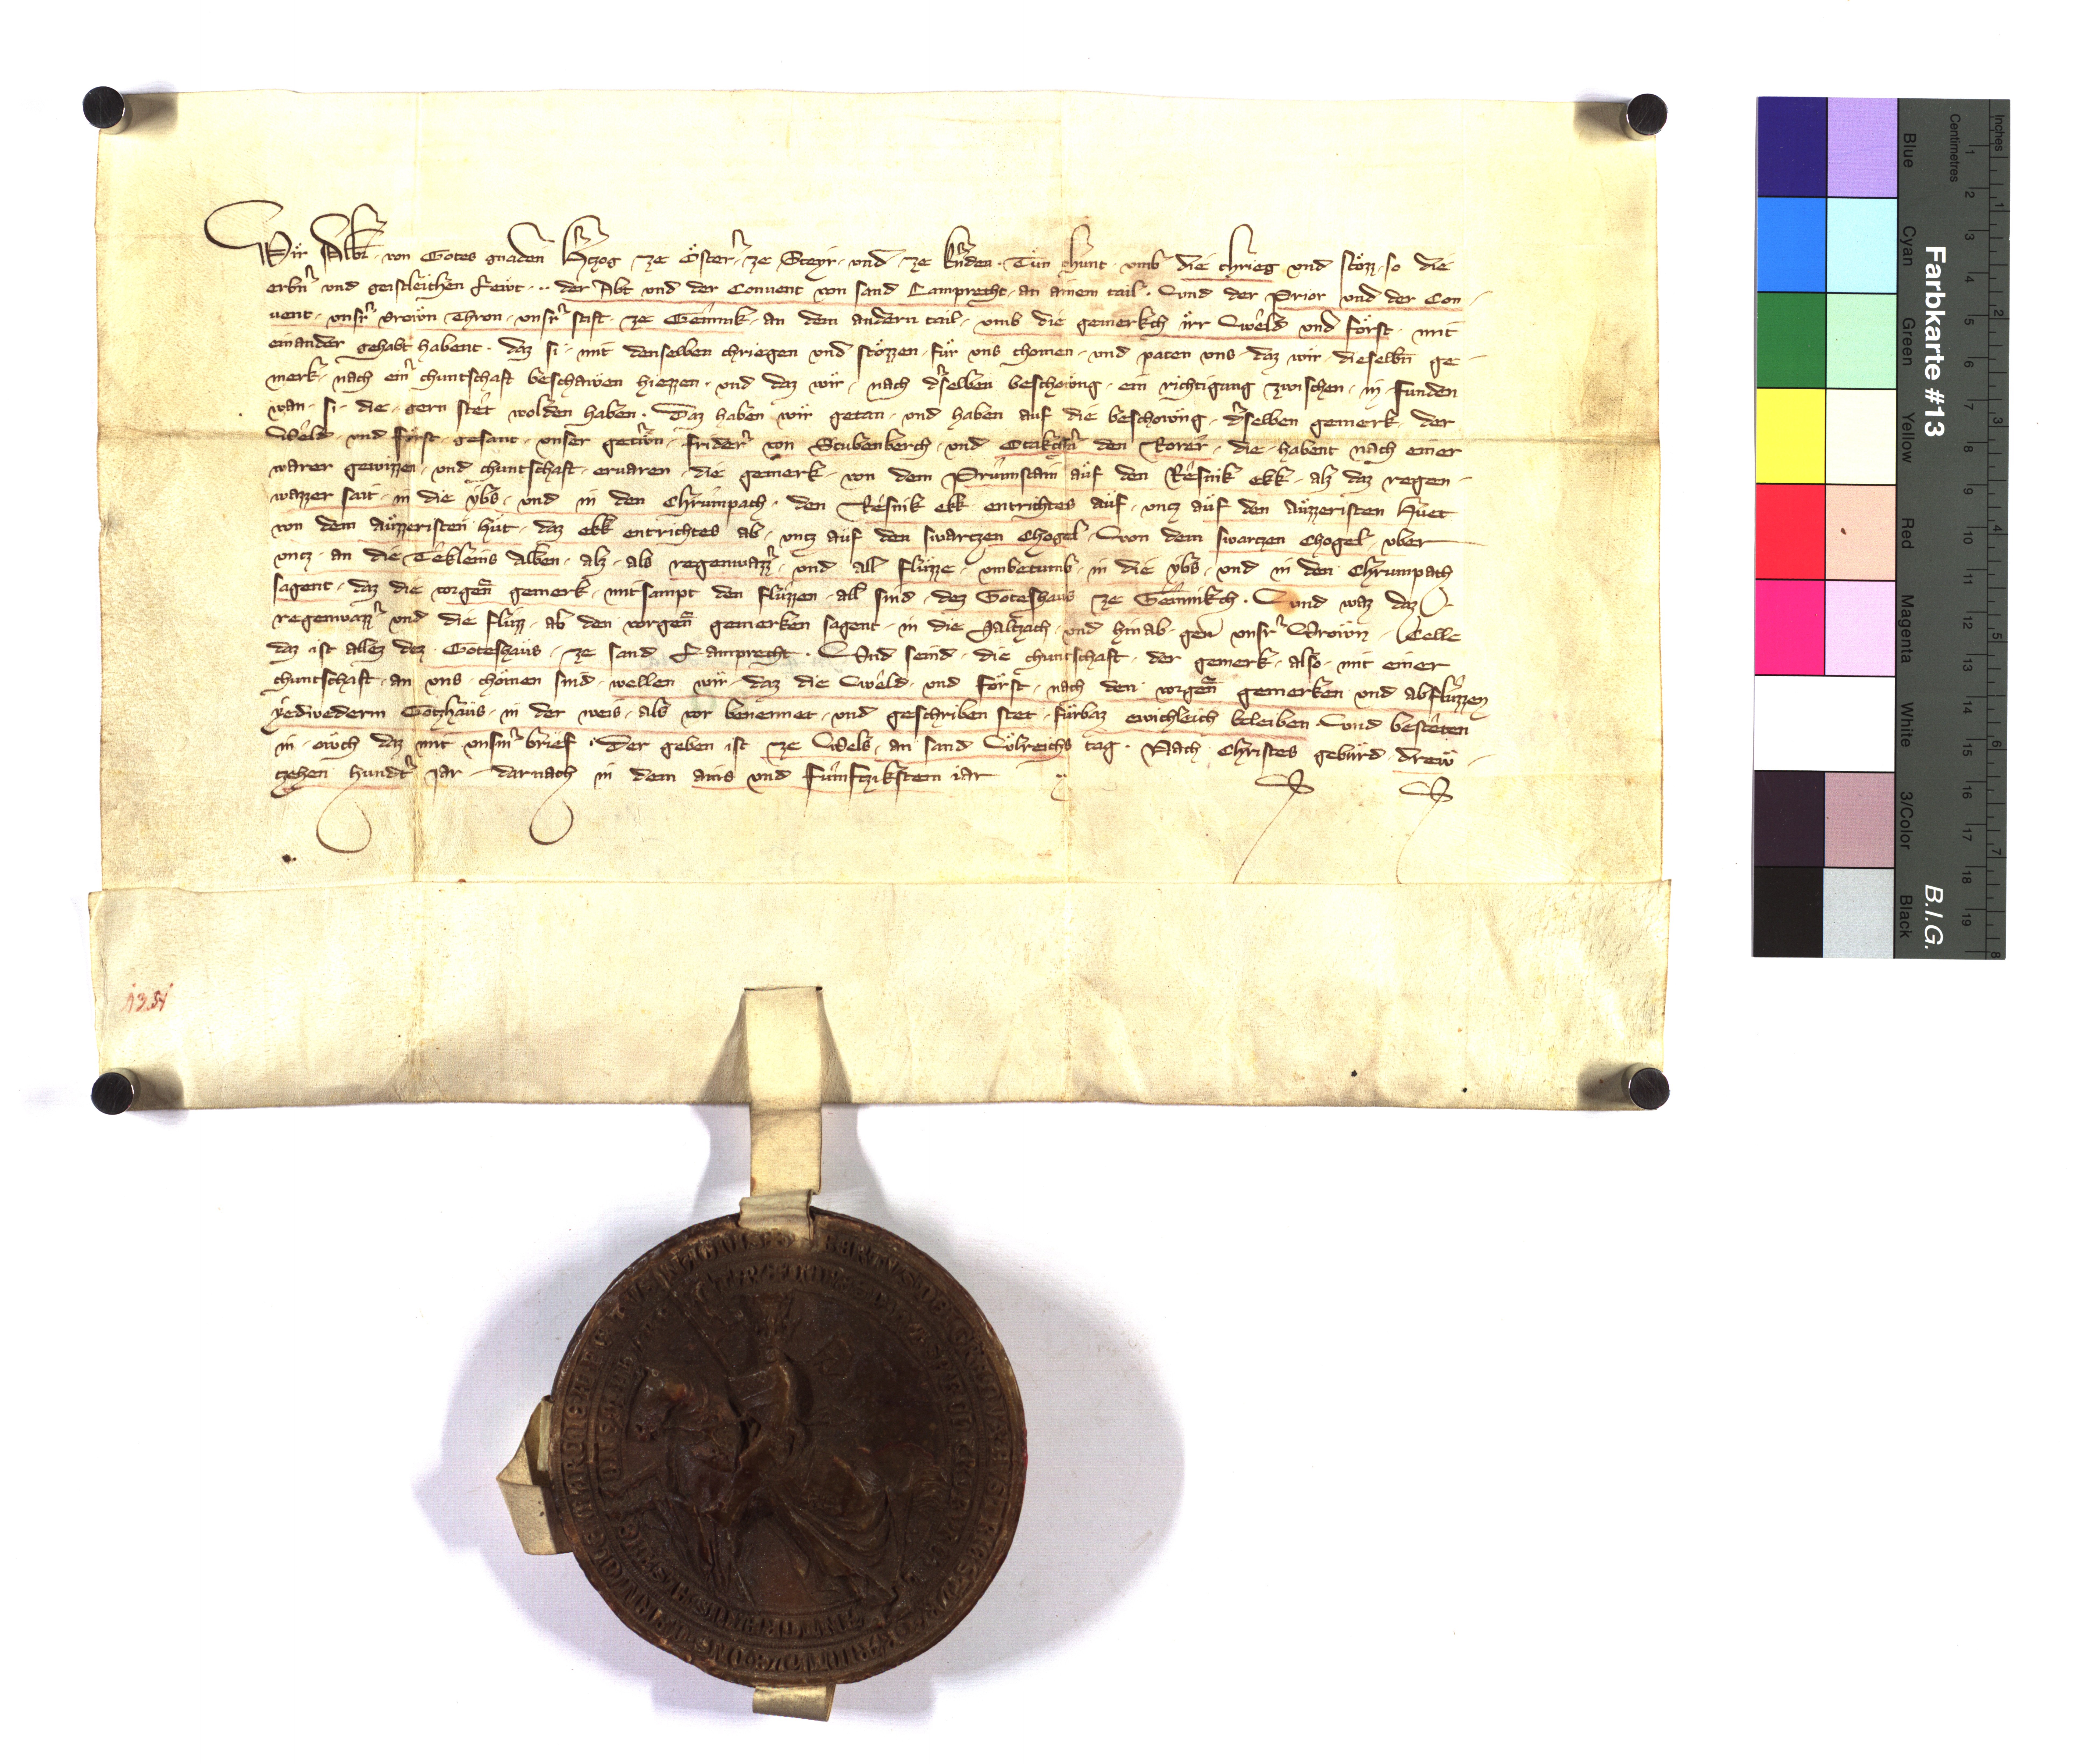 Wir Albr von Gotes gnaden Hertzog ze Österr ze Steyr und ze Kernden Tůn chunt umb die chrieg und stözz so die
erbern und geistleichen lewt .. der Abt und der Convent von sand Lamprecht an ainem tail Und der Prior und der Con-
vent unsrr Vrown Thron unsrr stift ze Gemnik an dem andern tail umb die gemerkch irr Weld und Först mit
einander gehabt habent daz si mit denselben chriegen und stözzen für uns chomen und paten uns daz wir dieselbn ge-
merk nach einr chuntschaft beschawen hiezzen und daz wir nach drselben beschowng ein richtigung zwischen in funden
wan si die gern stet wolden haben Daz haben wir getan und haben auf die beschowng drselben gemerk der
Weld und Först gesant unser getrwn Fridern von Stubenberch und Otakchern den Rorer die habent nach einer
warer gewizzen und chuntschaft ervaren die gemerk von dem Prunnstain auf den Resnik ekk alz daz regen-
wazzer sait in die ybs und in den Chrumpach den Resnik ekk entrichtes auf untz auf den äuzzeristen Huet
von dem äuzzeristen hut daz ekk entrichtes ab untz auf den swartzen Chogel Von dem swartzen Chogel uber
untz an die Tekleins Alben alz als regenwazzr und all flüzze umbetumb in die ybs und in den Chrumpach
sagent daz die vorgen gemerk mitsampt den flüzzen all sind dez Goteshaus ze Gemnikch Und waz daz
regenwazzr und die flüzz ab den vorgen gemerken sagent in die Saltzach und hinab gen unsrr Vrown Celle
daz ist allez dez Goteshaus ze sand Lamprecht Und seind die chuntschaft der gemerk also mit einer
chuntschaft an uns chomen sind wellen wir daz die Weld und Först nach den vorgen gemerken und abflüzzen
yedwederm Gotzhaus in der weis als vor benennet und geschriben stet fürbaz ewichleich beleiben Und besteten
in owch daz mit unserm brief Der geben ist ze Wels an sand Ulreichs tag Nach Christes gebürd drew-
tzehen hundert Jar darnach in dem ains und fumftzikstem iar
1351
Farbkarte #13
B.I.G.
Blue Cyan Green Yellow Red Magenta White 3/Color Black
Centimetres 1 2 3 4 5 6 7 8 9 10 11 12 13 14 15 16 17 18 19
Inches 1 2 3 4 5 6 7 8